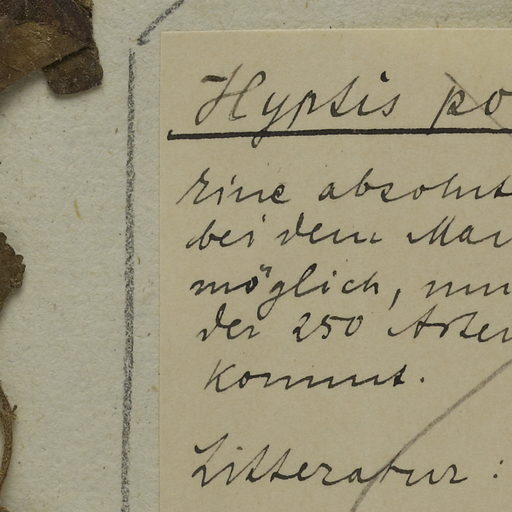 Hyptis po
Eine absolut
bei dem Man
möglich, nur
der 250 Arten
kommt.
Litteratur :